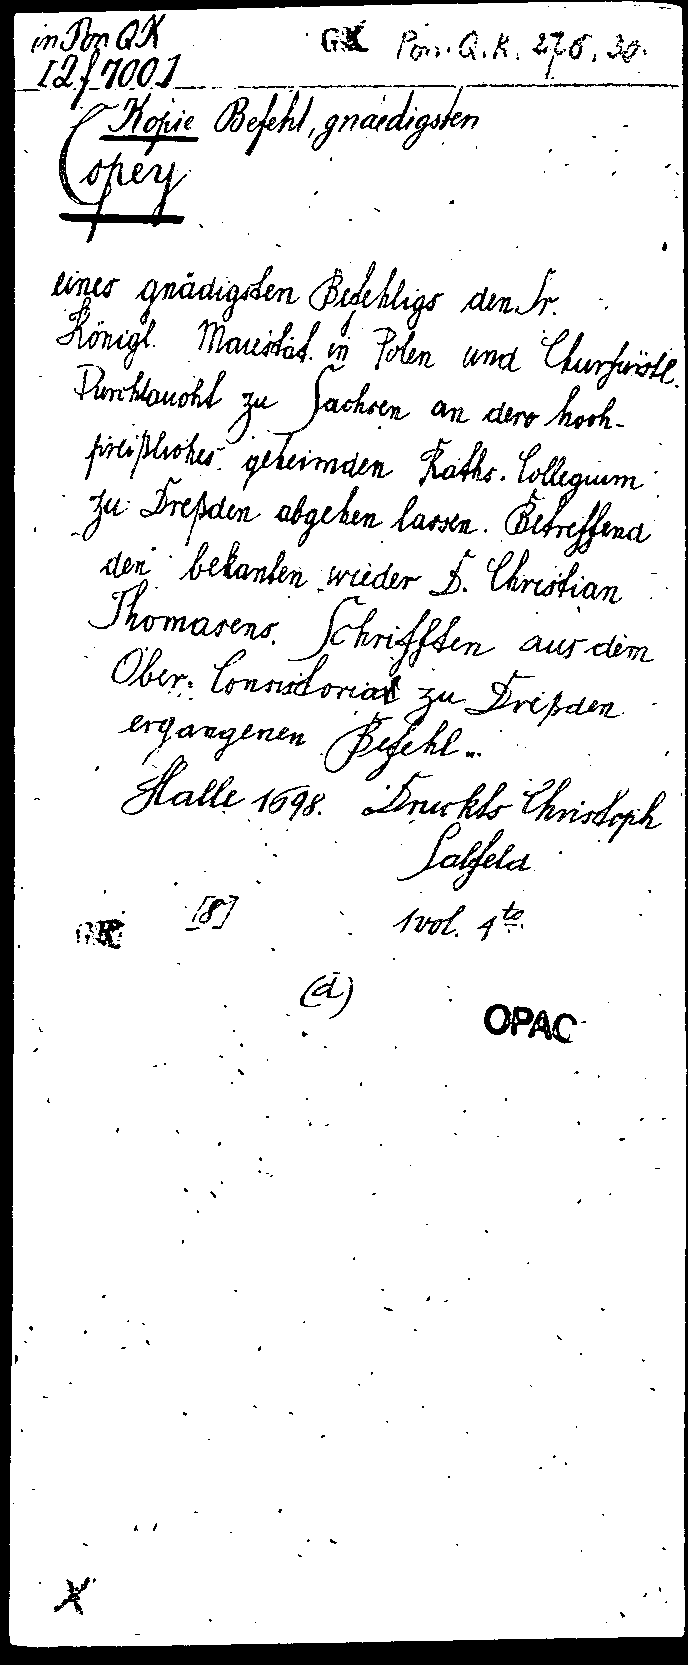 in Pon QK
GK Pon. Q. K. 276, 30.
12f7001
Kopie Befehl, gnaedigsten
Copey
eines gnädigsten Befehligs den Sr.
Königl. Maiestät. in Polen und Churfürstl.
Durchlaucht zu Sachsen an dero hoch-
preißliches geheimden Raths. Collegium
zu Dreßden abgehen lassen. Betreffend
den bekanten wieder D. Christian
Thomasens. Schrifften aus dem
Ober. Consistorial zu Dreßden
ergangenen Befehl...
Halle 1698. Druckts Christoph
Salfeld
GK [8] 1 vol. 4to.
(d)
OPAC
X